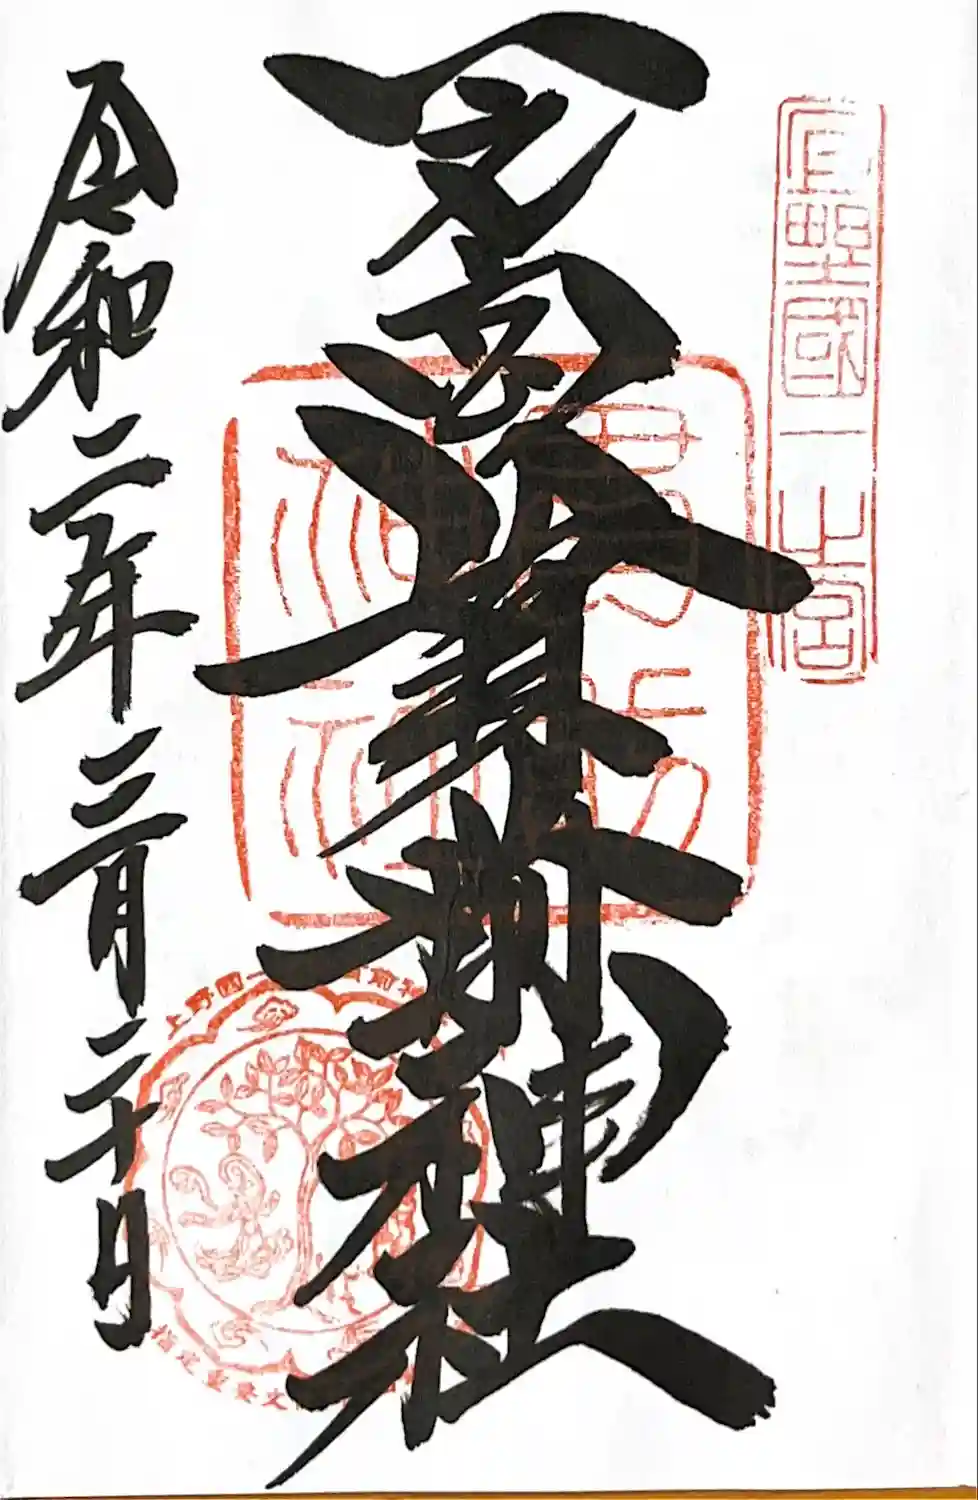 上野國一之宮
一之宮貫前神社
令和二年三月二十日
貫前神社
上野国一
前神
指定重要文